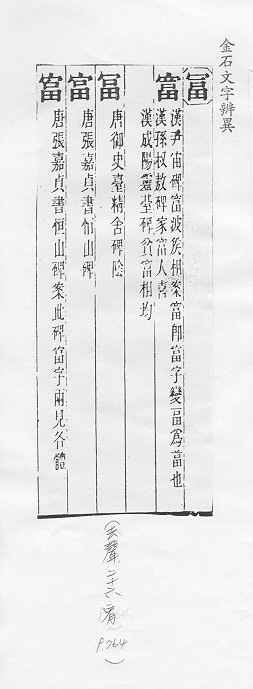 金石文字辨異
冨
富
漢尹宙碑富波矦相案富即富字變
為
也
漢孫叔敖碑家富人喜
漢成陽靈臺碑貧富相均
冨
唐御史臺精舍碑陰
富
唐張嘉貞書恒山碑
富
唐張嘉貞書恒山碑案此碑富字兩見各體
(去聲.二十六宥
P.764)